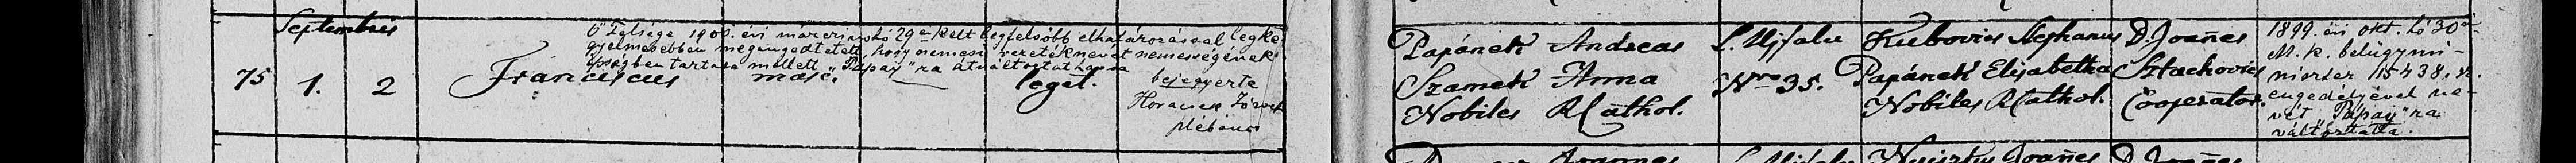 Septembris
Ő Felsége 1906. évi márczius hó 29-én kelt legfelsőbb elhatározással legke-
gyelmesebben megengedtetett, hogy nemesi vezetéknevét nemességének
épségben tartása mellett "Pápay"-ra átváltoztathassa
75 1. 2 Franciscus masc. — leget.
bejegyezte
Horacsek József
plébános
Papánek Andreas
Szamek Anna
Nobiles R Cathol.
L. Ujfalu
Nro 35.
Kubovics Stephanus
Papánek Elisabetha
Nobiles R Cathol.
D. Joañes
Sztachovics
Cooperator.
1899. évi okt. hó 30-
M. k. belügymi-
niszter 115438. sz.
engedélyével ne-
vét "Pápay"-ra
változtatta.
Joannes